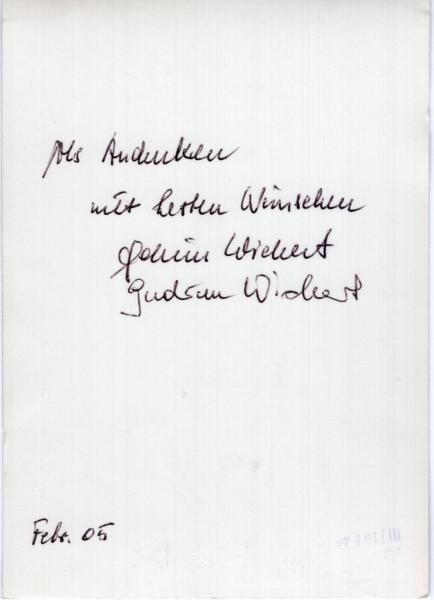 Als Andenken
mit besten Wünschen
Jochim Wichert
Gudrun Wichert
Febr. 05